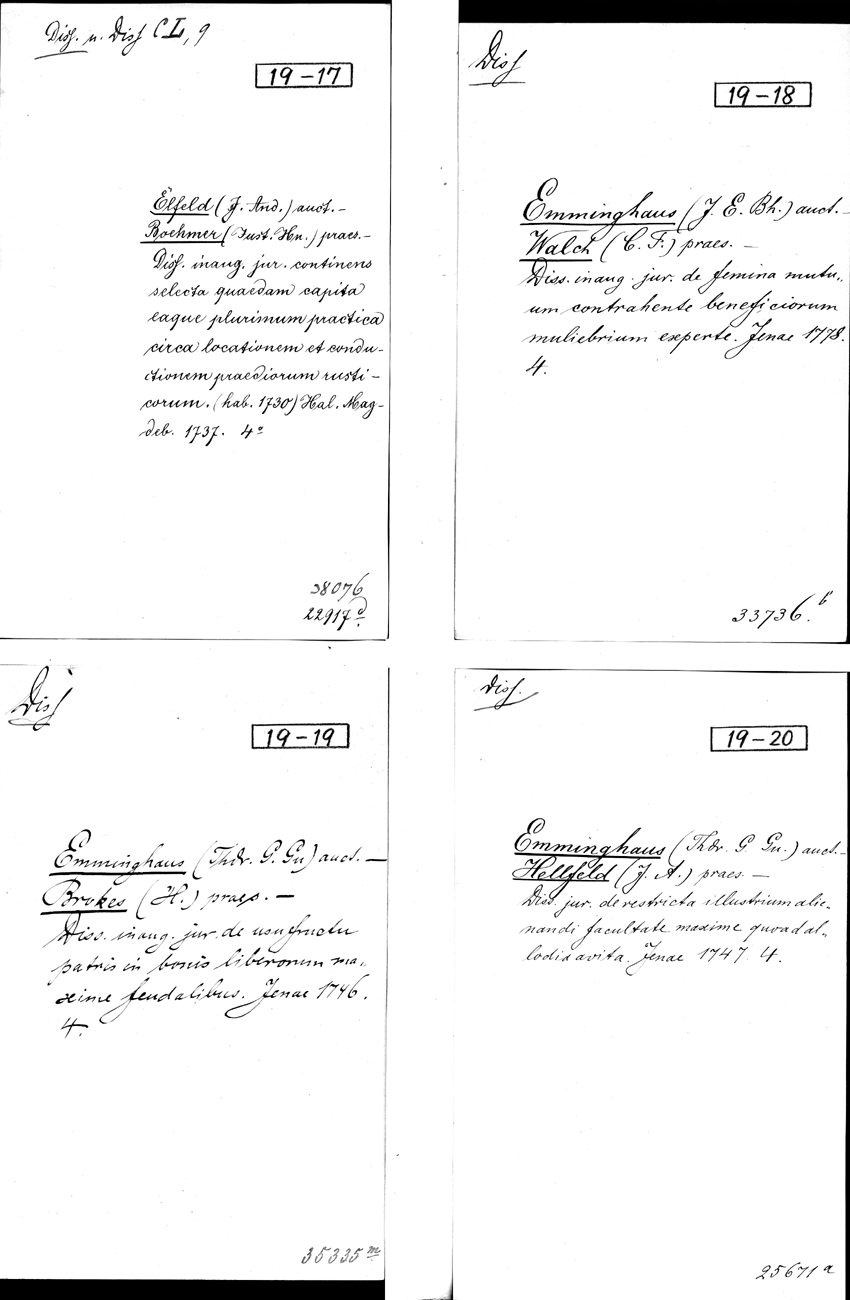 Diss. u. Diss CL, 9
19-17
Elfeld (J. And.) auct. –
Boehmer (Just. Hn.) praes. –
Diss. inaug. jur. continens
selecta quaedam capita
eaque plurimum practica
circa locationem et condu-
ctionem praediorum rusti-
corum. (hab. 1730) Hal. Mag-
deb. 1737. 4°
38076
22917 d.
Diss
19-18
Emminghaus (J. E. Bh.) auct. –
Walch (C. F.) praes. –
Diss. inaug. jur. de femina mutu-
um contrahente beneficiorum
muliebrium experte. Jenae 1778.
4.
33736. b
Diss
19-19
Emminghaus (Thdr. G. Gu) auct. –
Brokes (H.) praes. –
Diss. inaug. jur. de usufructu
patris in bonis liberorum ma-
xime feudalibus. Jenae 1746.
4.
35335 m
Diss.
19-20
Emminghaus (Thdr. G. Gu.) auct. –
Hellfeld (J. A.) praes. –
Diss. jur. de restricta illustrium alie-
nandi facultate maxime quoad al-
lodia avita. Jenae 1747. 4.
25671 a